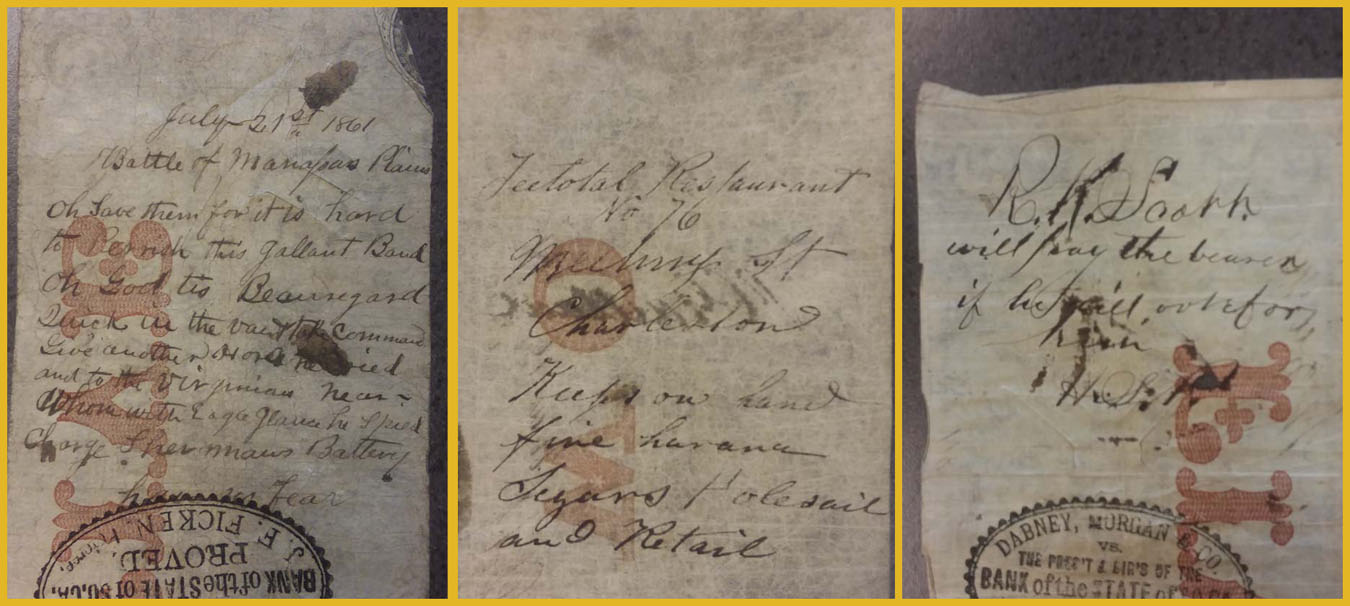 July 21st 1861
Battle of Manassas Plains
Oh Save them for it is hard
to Perrish this gallant Band
Oh God tis Beauregard
Quick in the van take Command
Give another Horse he cried
and to the Virginian near
Whom with Eagle glance he spied
Charge Shermans Battery
have no Fear
J. E. FICKEN,
PROVED.
BANK of the STATE of SO. CA.
Teetotal Restaurant
No 76
St
Charleston
Keeps on hand
fine havana
Segars Holesail
and Retail
R. K. Scott
will pay the bearer
if he
him
DABNEY, MORGAN & CO.
VS.
THE PRES'T & DIR'S OF THE
BANK of the STATE of SO. CA.